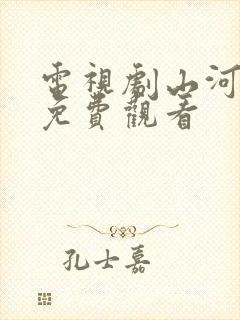 電視劇山河
免費觀看
孔士嘉